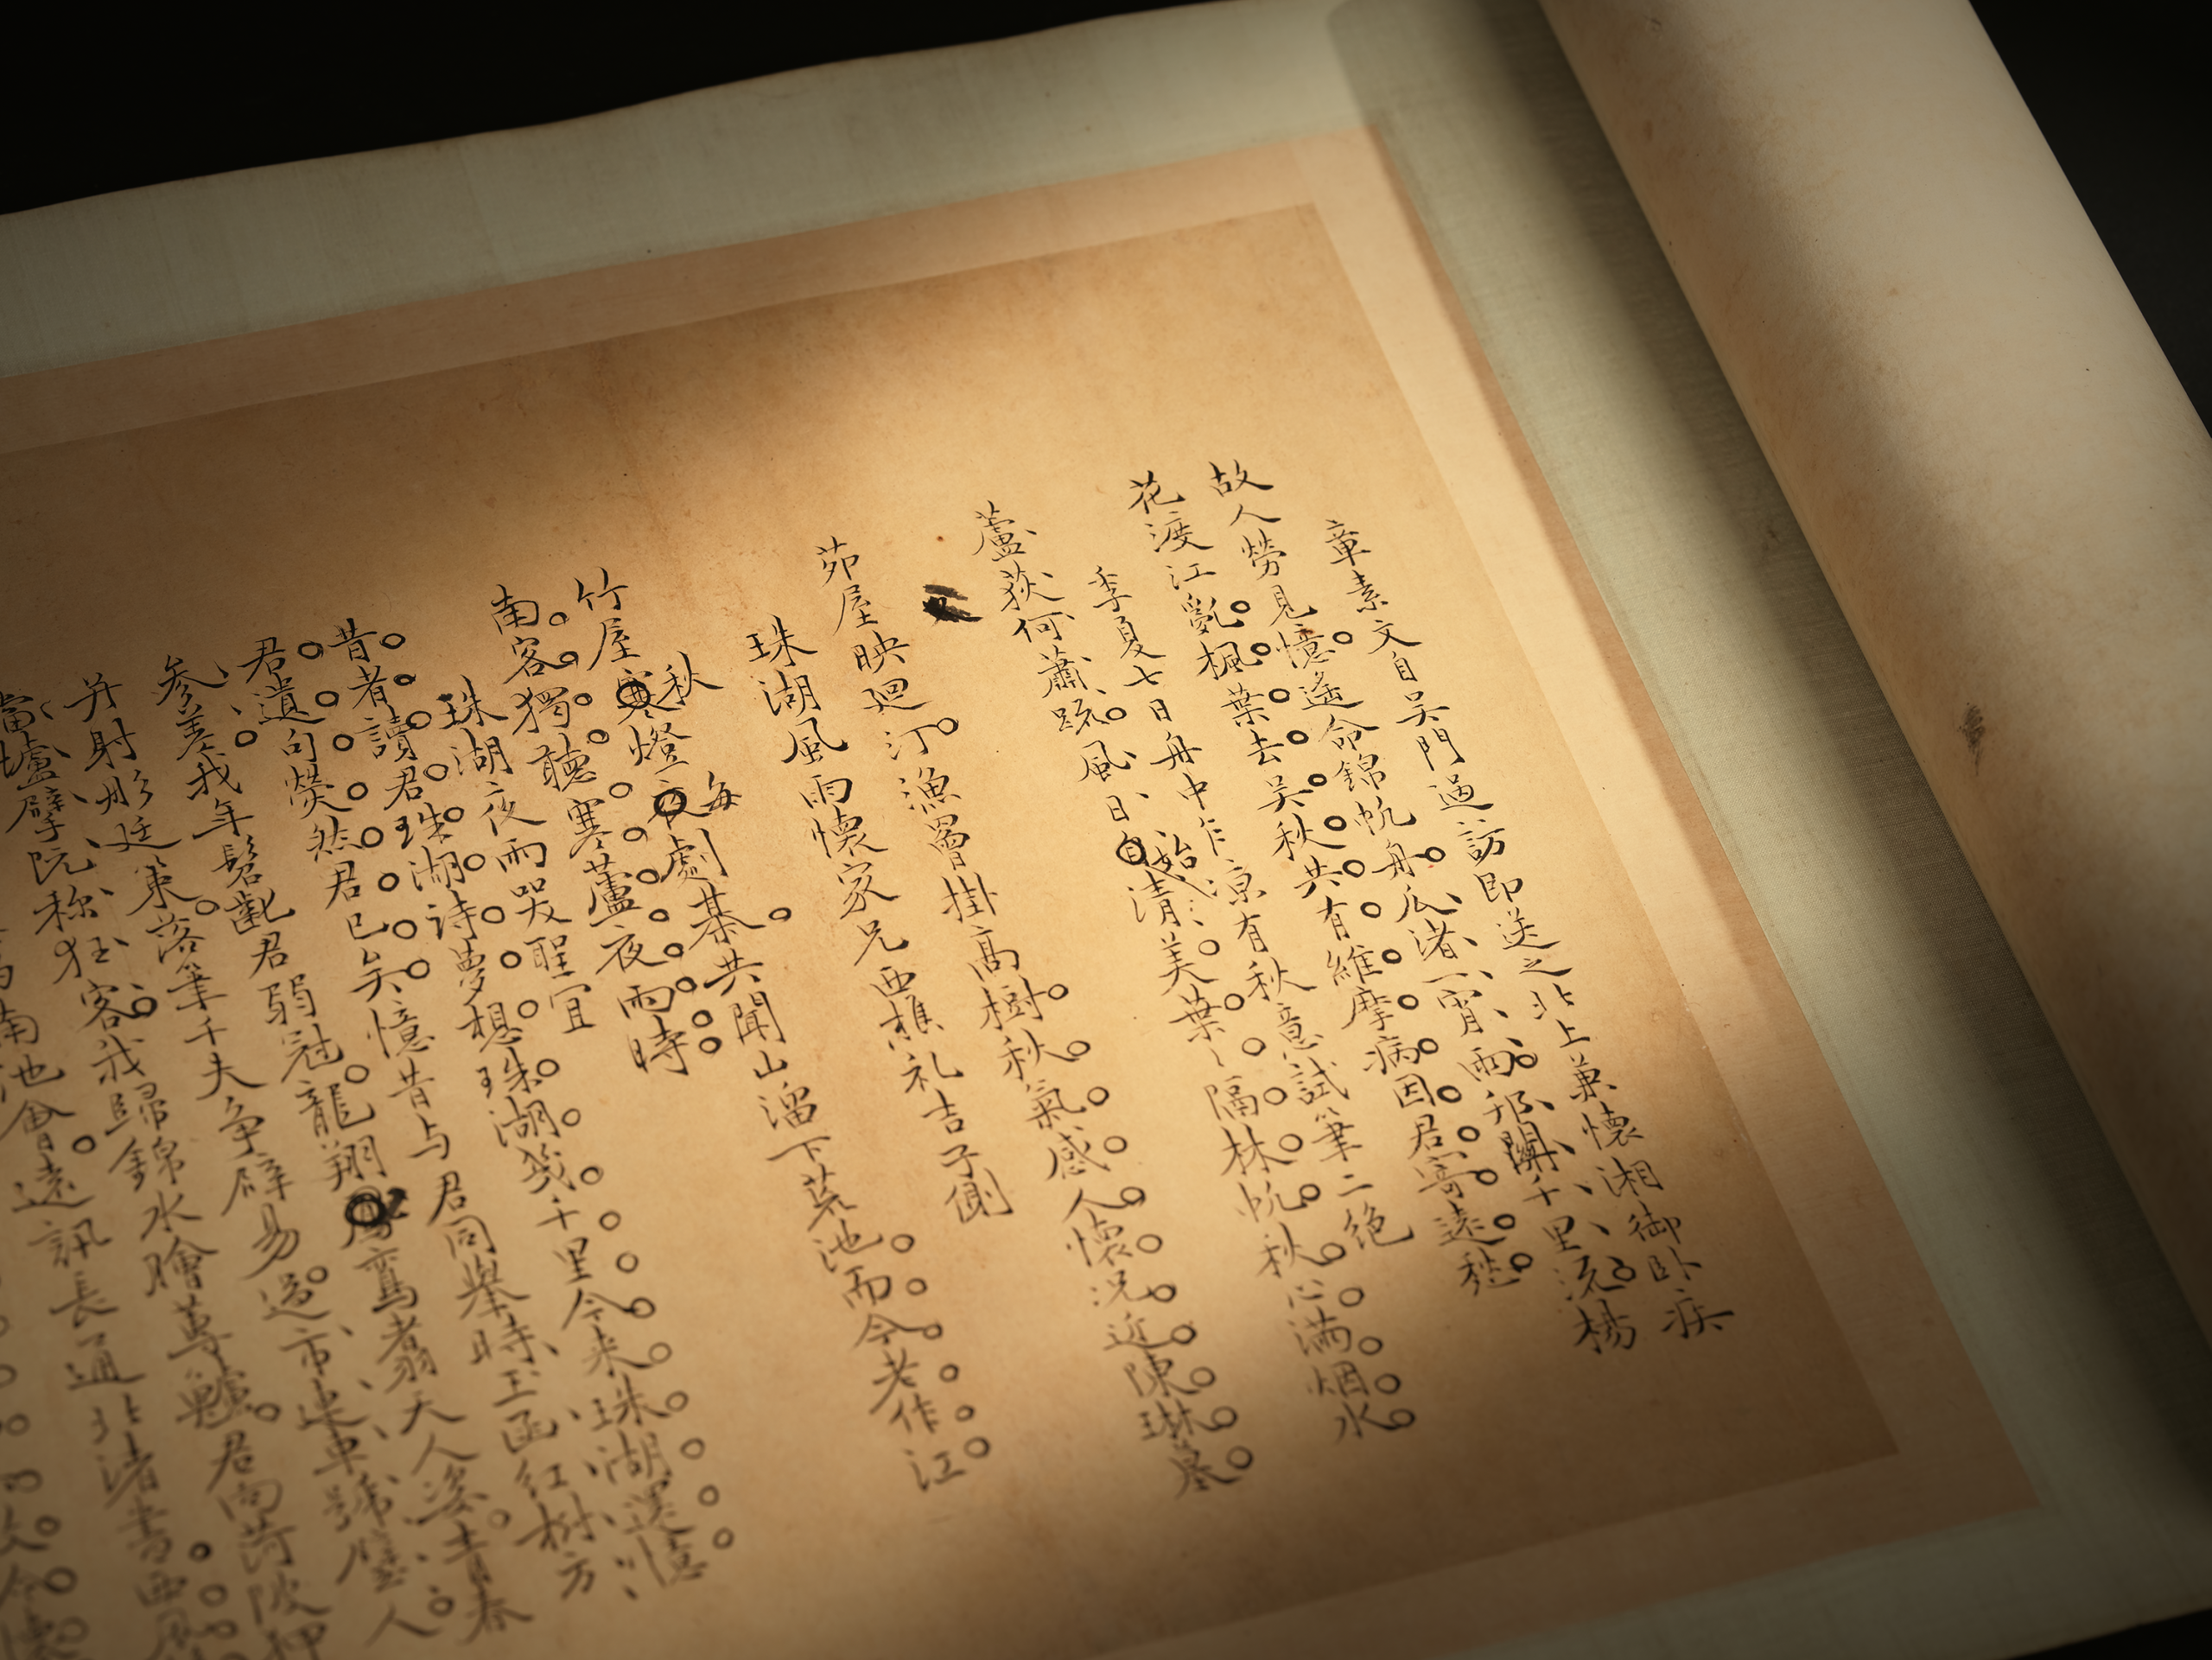 章素文自吴門過訪即送之北上兼懷湘御卧疾
故人勞見憶遙命錦帆舟瓜渚一宵雨邗關千里流楊
花渡江亂楓葉去吴秋共有維摩病因君寄遠愁
季夏七日舟中乍涼有秋意試筆二绝
蘆荻何蕭疏風日自始清美葉〻隔林帆秋心满烟水
茆屋映廻汀漁罾掛高樹秋氣感人懷況近陳琳墓
珠湖風雨懷家兄西樵礼吉子側
秋每劇棊共聞山溜下荒池而今老作江
竹屋寒燈夜
南客獨聽寒蘆夜雨時
珠湖夜雨哭聖宜
昔者讀君珠湖诗夢想珠湖箋千里今来珠湖還憶
君遺句熒然君已矣憶昔与君同舉時玉函红樹方
参差我年髫齔君弱冠龍翔鸞翥天人姿青春
并射彤廷策落筆千夫争辟易過市連車號璧人
當壚擘阮称狂客我歸錦水膾蓴鱸君向菏陂押
南池會遠訊長通北渚書西風